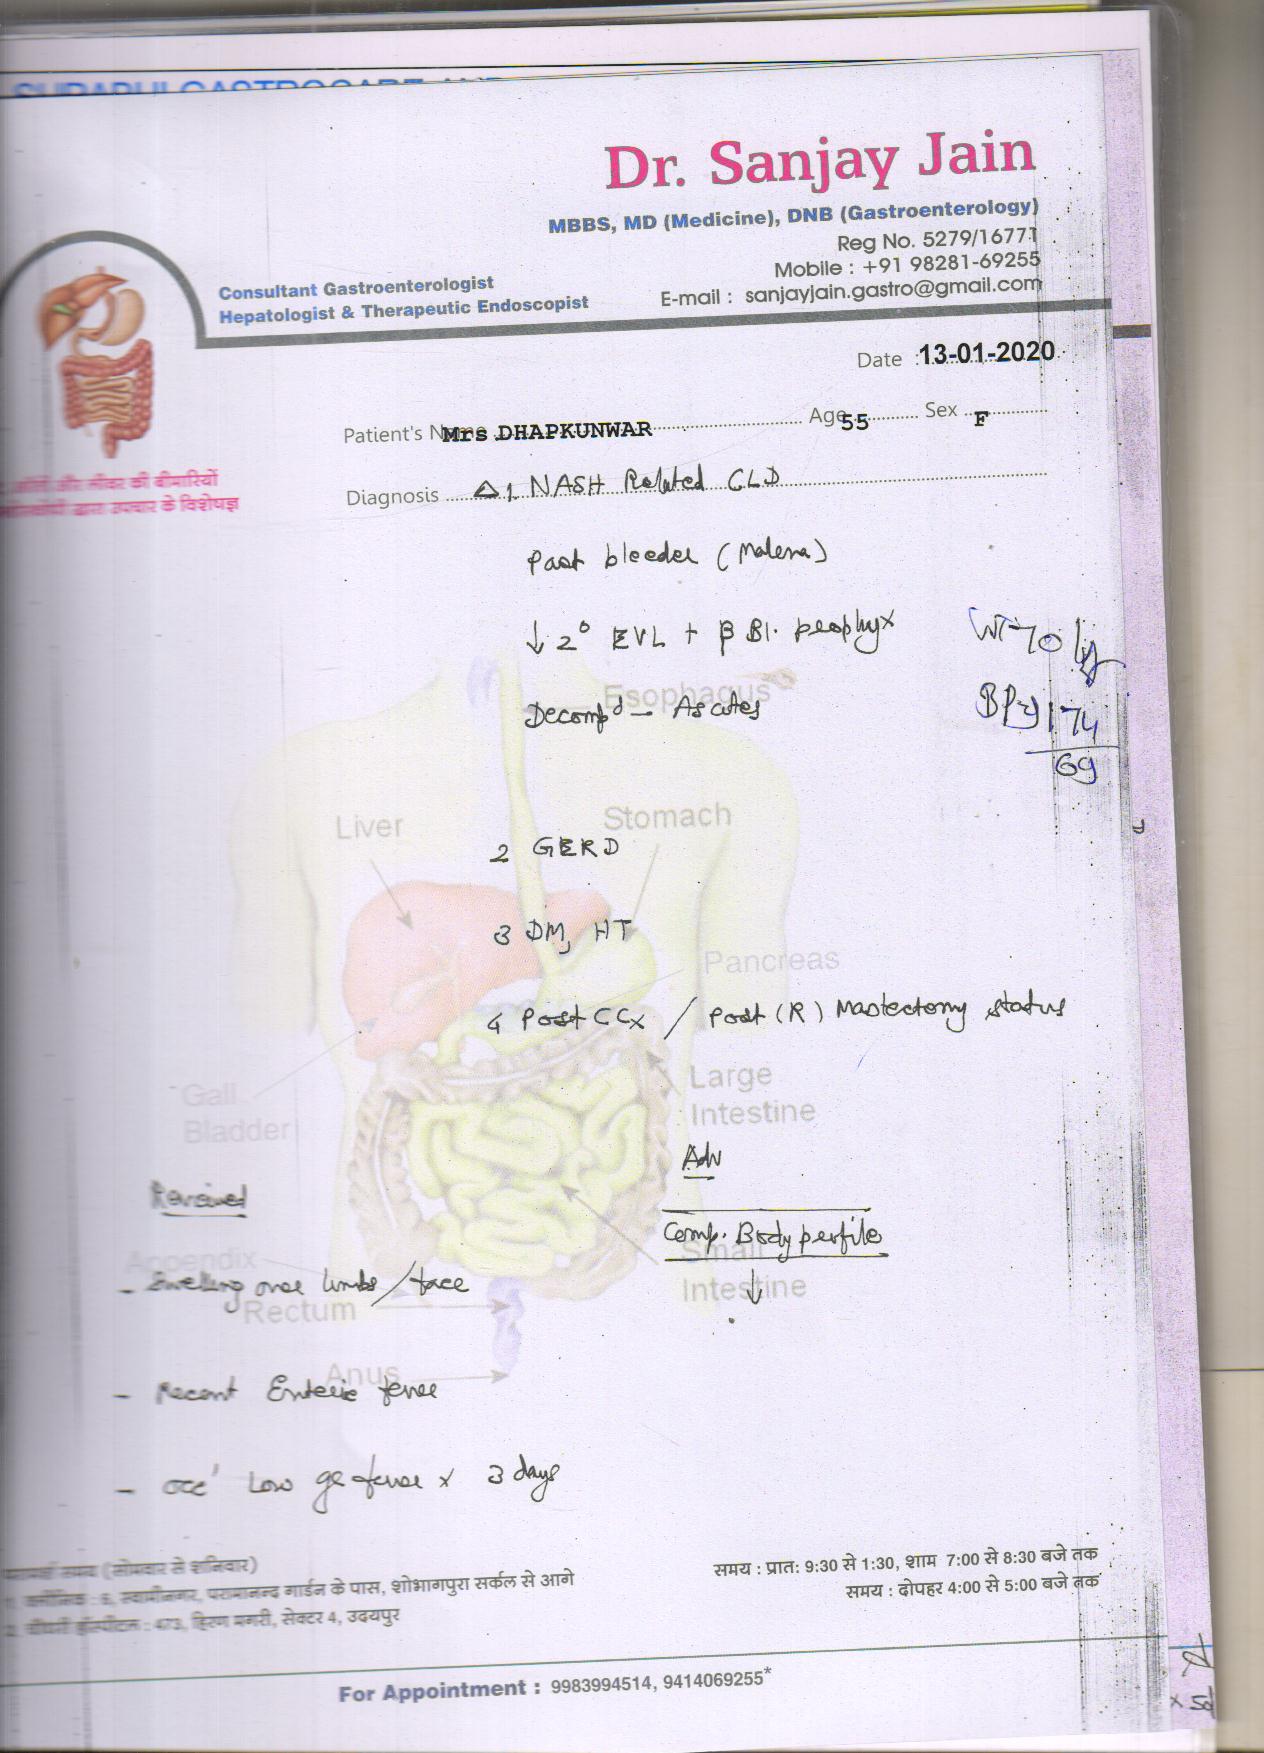 Dr. Sanjay Jain
MBBS, MD (Medicine), DNB (Gastroenterology)
Reg No. 5279/16771
Mobile : +91 98281-69255
E-mail : sanjayjain.gastro@gmail.com
Consultant Gastroenterologist
Hepatologist & Therapeutic Endoscopist
Date : 13-01-2020
Patient's Name Mrs DHAPKUNWAR Age 55 Sex F
और लीवर की बीमारियों
द्वारा उपचार के विशेषज्ञ
Diagnosis Δ 1, NASH Related CLD
Past bleeder (Malena)
↓ 2° EVL + β Bl. prophyx
WT-70 kg
Decompd - Ascites
BP 174
69
Esophagus
Liver
Stomach
2 GERD
3 DM, HT
Pancreas
4 Post CCx / Post (R) Mastectomy status
Gall
Bladder
Large
Intestine
Adv
Reviewed
Comp. Body perfile
Appendix
Small
Intestine
↓
- Swelling over limbs/face
Rectum
Anus
- Recent Enteric fever
- occ' Low gr fever x 3 days
समय (सोमवार से शनिवार)
समय : प्रातः 9:30 से 1:30, शाम 7:00 से 8:30 बजे तक
: 6, स्वामीनगर, परामानन्द गार्डन के पास, शोभागपुरा सर्कल से आगे
समय : दोपहर 4:00 से 5:00 बजे तक
हॉस्पीटल : 473, हिरण मगरी, सेक्टर 4, उदयपुर
For Appointment : 9983994514, 9414069255*
x 5d